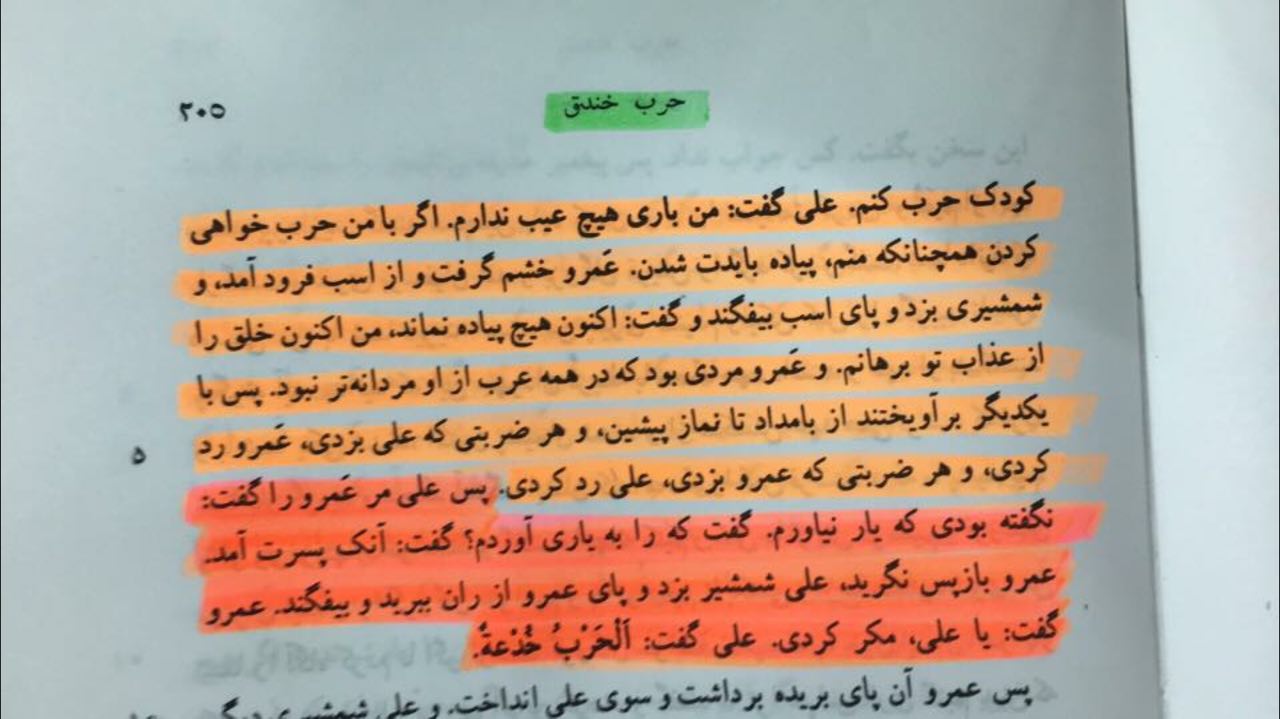 حرب خندق
۲۰۵
کودک حرب کنم. علی گفت: من باری هیچ عیب ندارم. اگر با من حرب خواهی
کردن همچنانکه منم، پیاده بایدت شدن. عَمرو خشم گرفت و از اسب فرود آمد، و
شمشیری بزد و پای اسب بیفگند و گفت: اکنون هیچ پیاده نماند، من اکنون خلق را
از عذاب تو برهانم. و عَمرو مردی بود که در همه عرب از او مردانه‌تر نبود. پس با
یکدیگر برآویختند از بامداد تا نماز پیشین، و هر ضربتی که علی بزدی، عَمرو رد
۵
کردی، و هر ضربتی که عمرو بزدی، علی رد کردی. پس علی مر عَمرو را گفت:
نگفته بودی که یار نیاورم. گفت که را به یاری آوردم؟ گفت: آنک پسرت آمد.
عمرو بازپس نگرید، علی شمشیر بزد و پای عمرو از ران ببرید و بیفگند. عمرو
گفت: یا علی، مکر کردی. علی گفت: اَلْحَرْبُ خُدْعةٌ.
پس عمرو آن پای بریده برداشت و سوی علی انداخت. و علی شمشیری دیگر